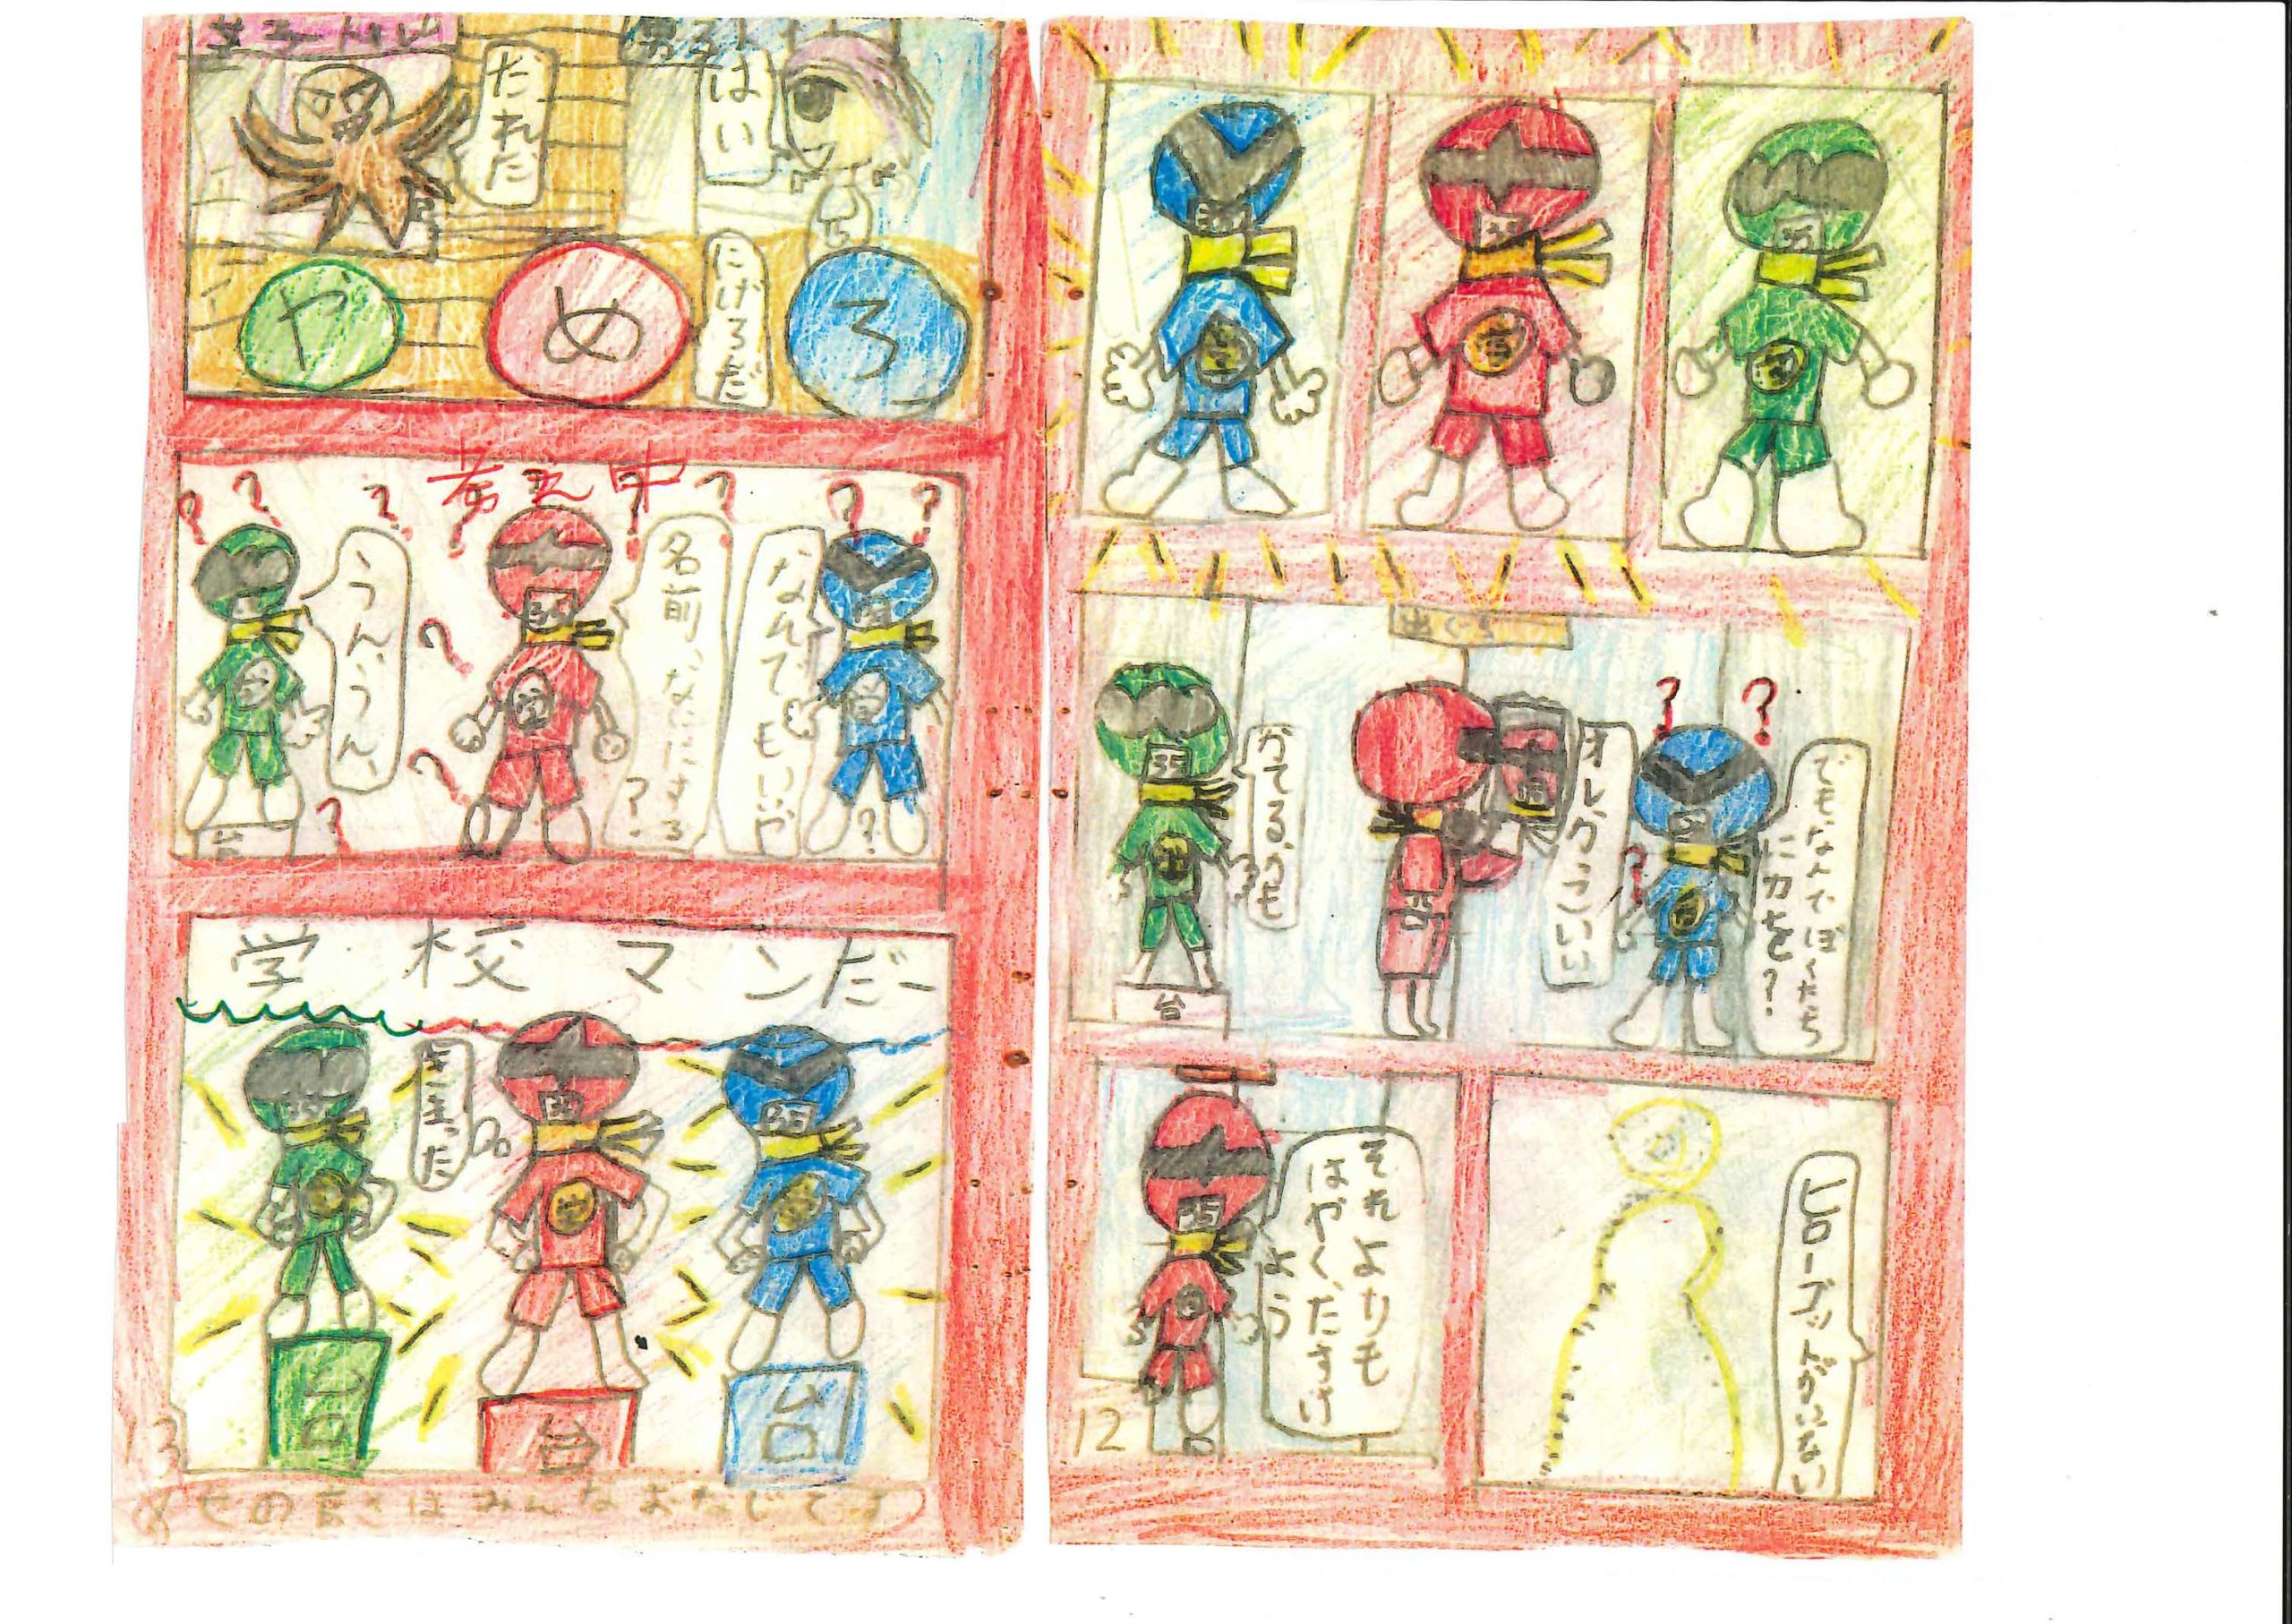 出ぐち
でもなんでぼくたち
に力を?
オレかっこいい
かてるかも
台
ヒーローゴッドがいない
それよりも
はやくたすけ
よう
12
女子トイレ
男子
はい
だれだ
や
め
ろ
にげろだ
考え中
なんでもいいや
名前、なにする
?
うん、うん、
台
学校マンだー
きまった
台
台
台
13
※せの高さはみんなおなじです